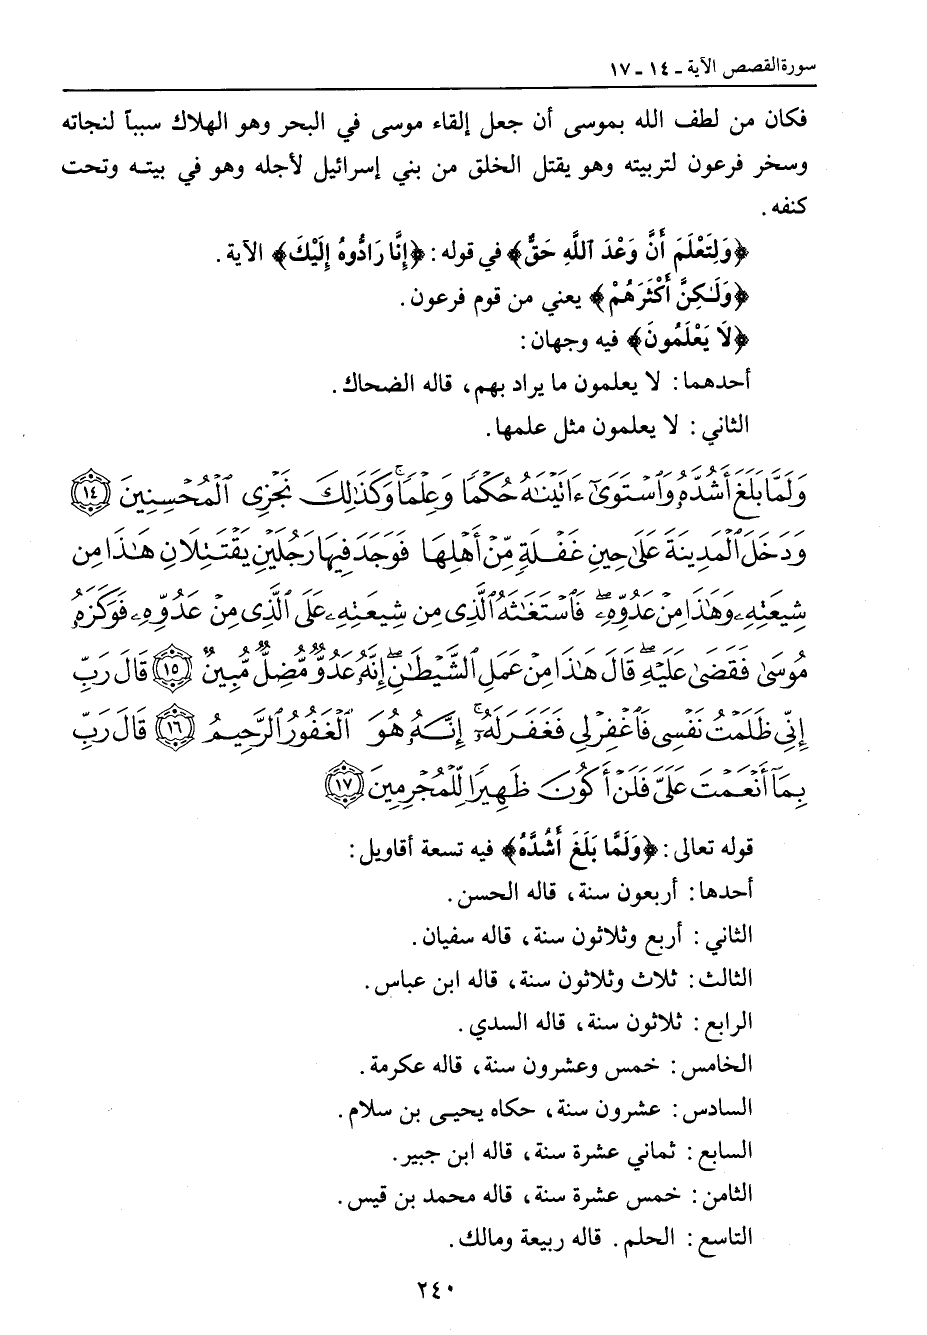 سورة القصص الآية ـ ١٤ ـ ١٧
فكان من لطف الله بموسى أن جعل إلقاء موسى في البحر وهو الهلاك سبباً لنجاته
وسخر فرعون لتربيته وهو يقتل الخلق من بني إسرائيل لأجله وهو في بيته وتحت
كنفه .
﴿وَلِتَعْلَمَ أَنَّ وَعْدَ ٱللَّهِ حَقٌّ﴾ في قوله : ﴿إِنَّا رَادُّوهُ إِلَيْكَ﴾ الآية .
﴿وَلَٰكِنَّ أَكْثَرَهُمْ﴾ يعني من قوم فرعون .
﴿لَا يَعْلَمُونَ﴾ فيه وجهان :
أحدهما : لا يعلمون ما يراد بهم ، قاله الضحاك .
الثاني : لا يعلمون مثل علمها .
وَلَمَّا بَلَغَ أَشُدَّهُۥ وَٱسْتَوَىٰٓ ءَاتَيْنَٰهُ حُكْمًا وَعِلْمًا ۚ وَكَذَٰلِكَ نَجْزِى ٱلْمُحْسِنِينَ ١٤
وَدَخَلَ ٱلْمَدِينَةَ عَلَىٰ حِينِ غَفْلَةٍ مِّنْ أَهْلِهَا فَوَجَدَ فِيهَا رَجُلَيْنِ يَقْتَتِلَانِ هَٰذَا مِن
شِيعَتِهِۦ وَهَٰذَا مِنْ عَدُوِّهِۦ ۖ فَٱسْتَغَٰثَهُ ٱلَّذِى مِن شِيعَتِهِۦ عَلَى ٱلَّذِى مِنْ عَدُوِّهِۦ فَوَكَزَهُۥ
مُوسَىٰ فَقَضَىٰ عَلَيْهِ ۖ قَالَ هَٰذَا مِنْ عَمَلِ ٱلشَّيْطَٰنِ ۖ إِنَّهُۥ عَدُوٌّ مُّضِلٌّ مُّبِينٌ ١٥ قَالَ رَبِّ
إِنِّى ظَلَمْتُ نَفْسِى فَٱغْفِرْ لِى فَغَفَرَ لَهُۥٓ ۚ إِنَّهُۥ هُوَ ٱلْغَفُورُ ٱلرَّحِيمُ ١٦ قَالَ رَبِّ
بِمَآ أَنْعَمْتَ عَلَىَّ فَلَنْ أَكُونَ ظَهِيرًا لِّلْمُجْرِمِينَ ١٧
قوله تعالى : ﴿وَلَمَّا بَلَغَ أَشُدَّهُ﴾ فيه تسعة أقاويل :
أحدها : أربعون سنة ، قاله الحسن .
الثاني : أربع وثلاثون سنة ، قاله سفيان .
الثالث : ثلاث وثلاثون سنة ، قاله ابن عباس .
الرابع : ثلاثون سنة ، قاله السدي .
الخامس : خمس وعشرون سنة ، قاله عكرمة .
السادس : عشرون سنة ، حكاه يحيى بن سلام .
السابع : ثماني عشرة سنة ، قاله ابن جبير .
الثامن : خمس عشرة سنة ، قاله محمد بن قيس .
التاسع : الحلم . قاله ربيعة ومالك .
٢٤٠